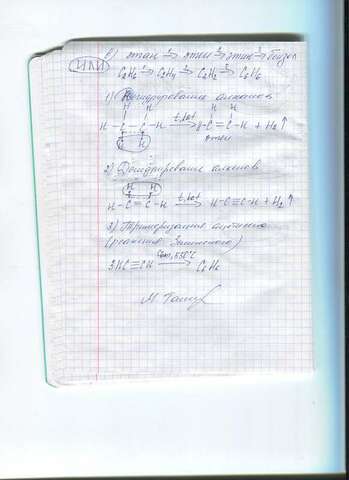 в) этан → этен → этин → бензол
(ИЛИ)
C₂H₆ → C₂H₄ → C₂H₂ → C₆H₆
1) Дегидрирование алканов
H H H H
H-C-C-H t, kat → H-C=C-H + H₂↑
H H этен
2) Дегидрирование алкенов
H H
H-C=C-H t, kat → H-C≡C-H + H₂↑
3) Тримеризация ацетилена
(реакция Зелинского)
3HC≡CH Cакт, 650°C → C₆H₆